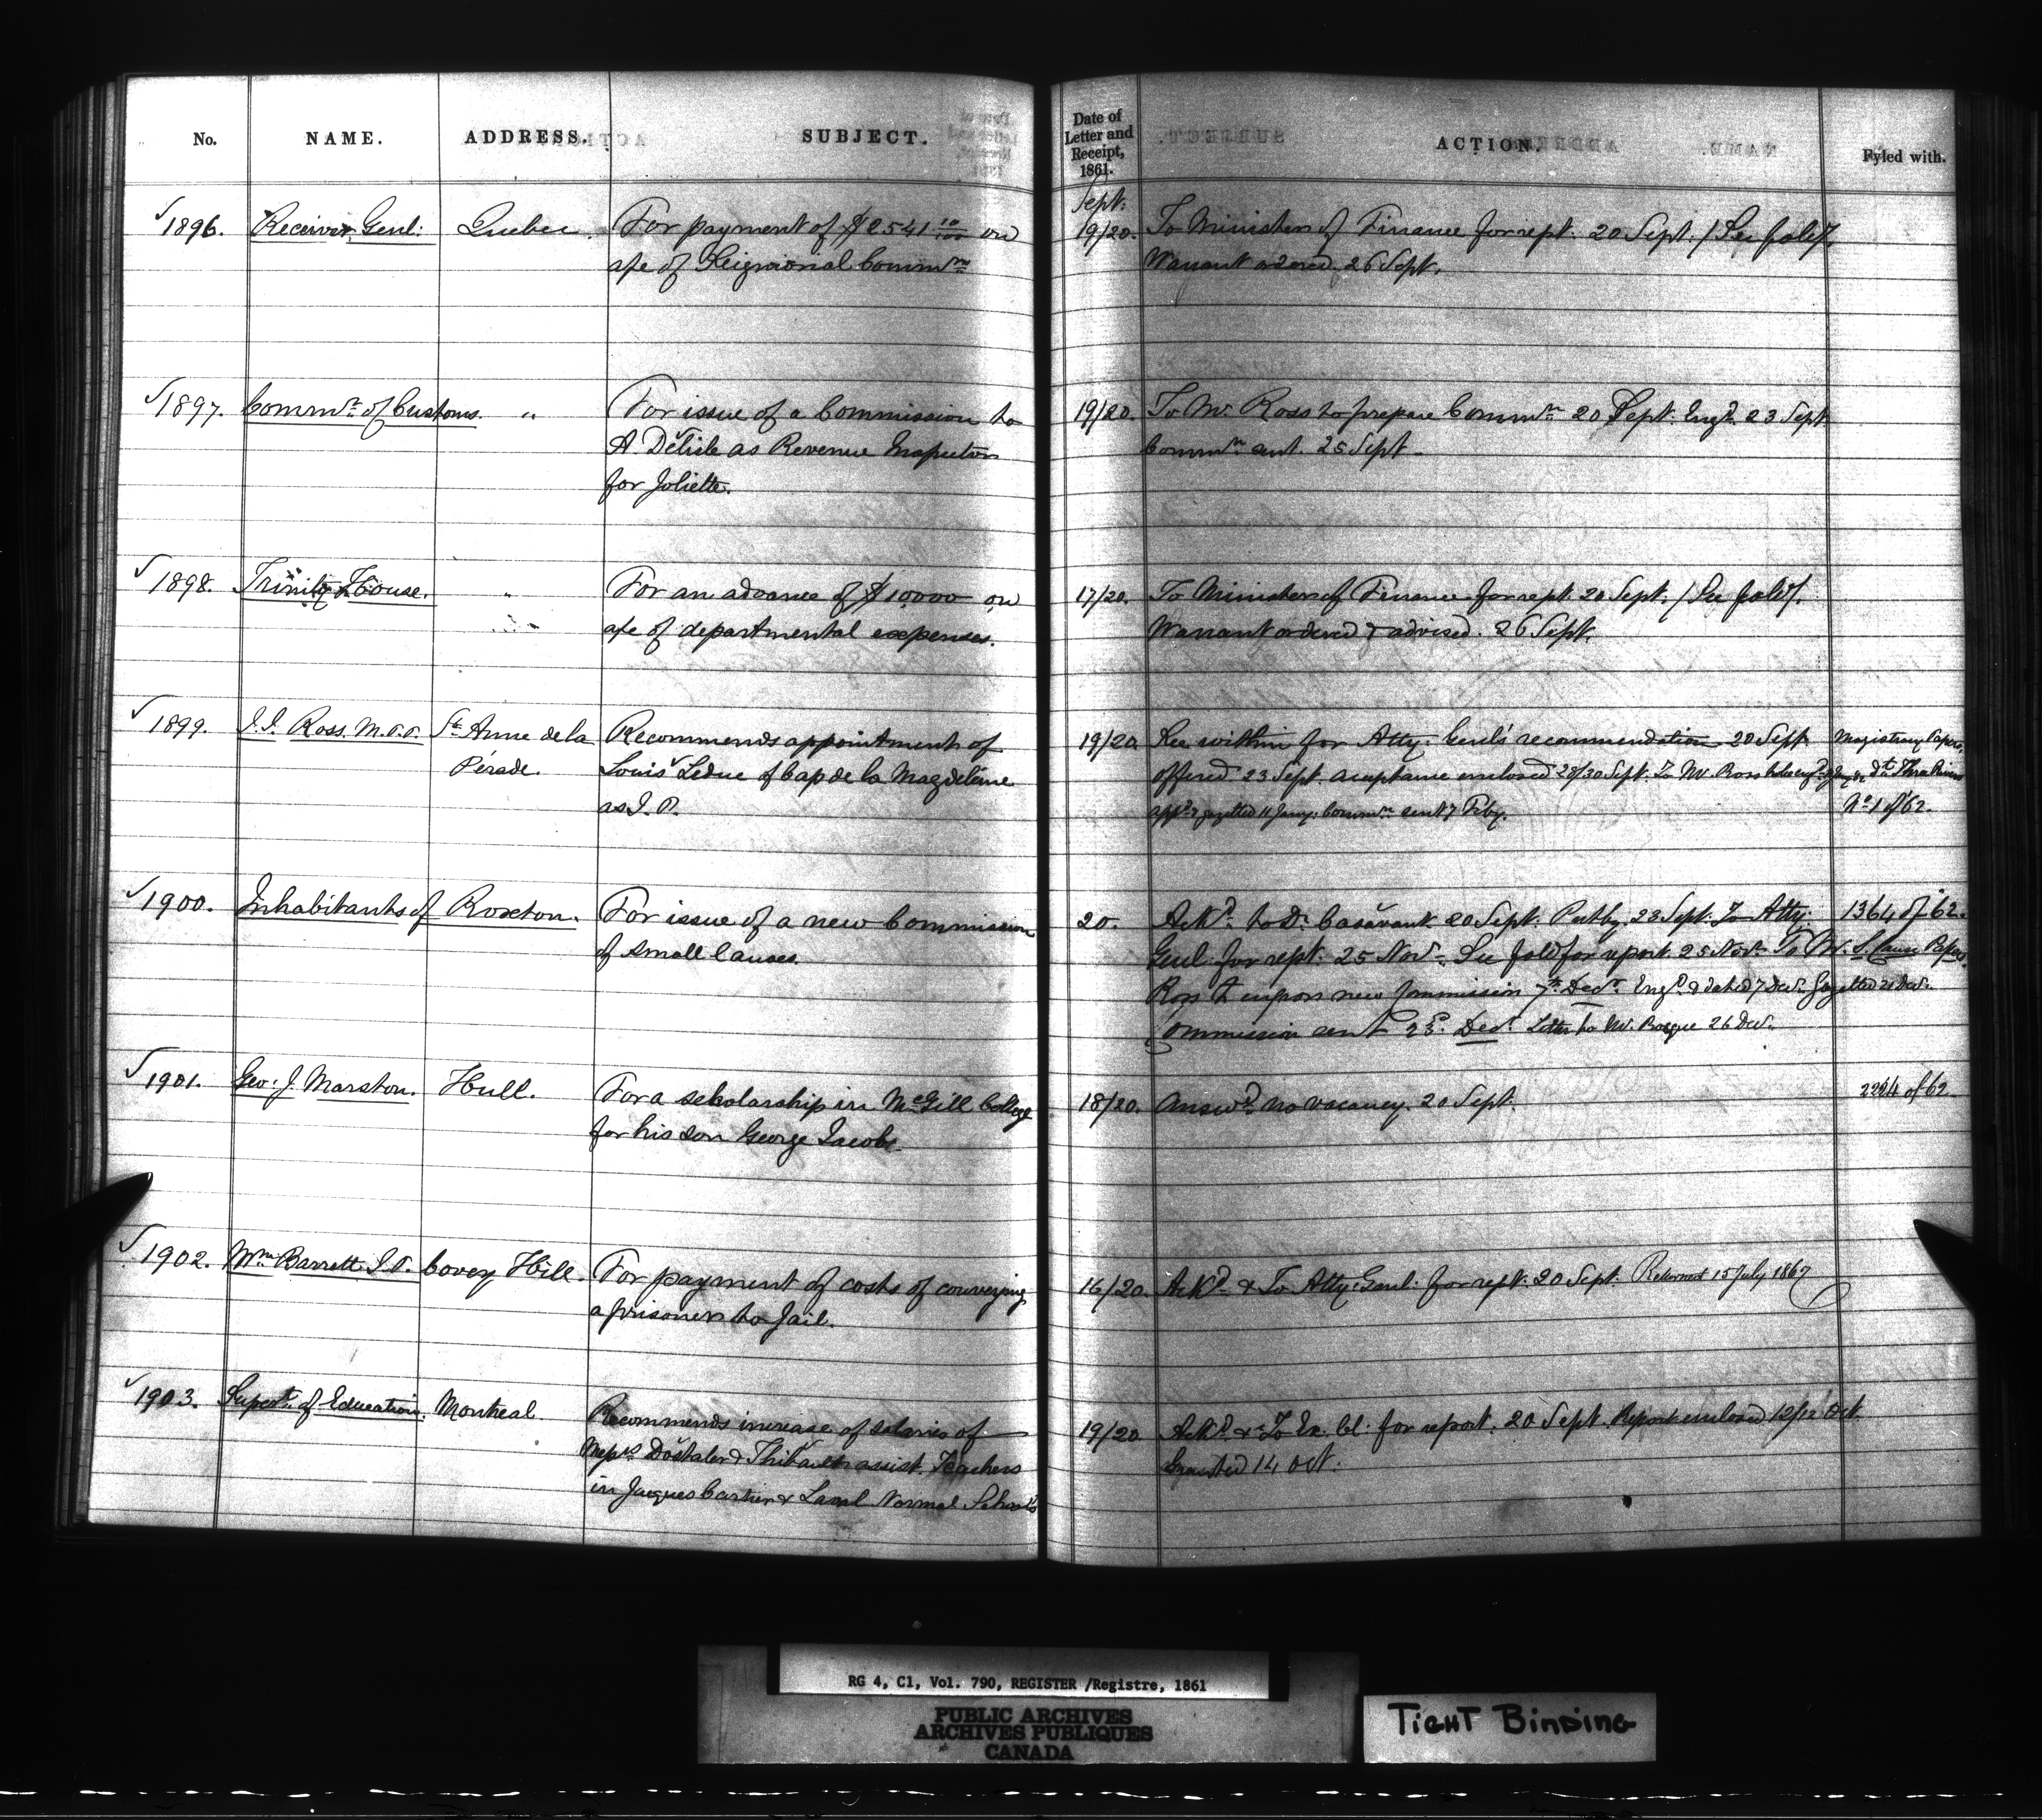 No. NAME. ADDRESS. SUBJECT. Date of Letter and Receipt, 1861. ACTION. Fyled with.
Sept.
1896. Receiver Genl: Quebec. For payment of $2541 10/100 on 19/20. To Minister of Finance for rept. 20 Sept. / See fold /.
a/c of Seignorial Commn Warrant ordered, 26 Sept.
1897. Commr of Customs. " For issue of a Commission to 19/20. To Mr Ross to prepare Commn 20 Sept. Engd 23 Sept
A. Délisle as Revenue Inspector Commn sent. 25 Sept
for Joliette.
1898. Trinity House. " For an advance of $10,000 on 17/20. To Minister of Finance for rept. 20 Sept. / See fold /.
a/c of departmental expenses. Warrant ordered & advised. 26 Sept.
1899. J. J. Ross. M.P.P. Ste Anne de la Recommends appointment of 19/20 See within for Atty. Genl's recommendation 20 Sept Magistracy Papers
Pérade. Louis Leduc of Cap de la Magdeleine offered 23 Sept. acceptance enclosed 28/30 Sept. To Mr. Ross Dt Three Rivers
as J. P. appd & gazetted 11 Jany. Commn sent 7 Feby. No 1 of 62.
1900. Inhabitants of Roxton. For issue of a new Commission 20. Ackd to Dr Casavant 20 Sept. Put by 23 Sept. To Atty. 1364 of 62.
of small causes. Genl. for rept. 25 Novr. See fold for report. 25 Novr. To Mr. S. Cause Papers.
Ross to engross new Commission 7th Decr. Engd & dated 7 Decr. Gazetted 21 Decr.
Commission sent 23d Decr Letter to Mr. 26 Decr.
1901. Geo: J. Marston. Hull. For a scholarship in McGill College 18/20. Answd no vacancy. 20 Sept. 2224 of 62
for his son George Jacob.
1902. Wm Barrett J.P. Covey Hill. For payment of costs of conveying 16/20. Ackd & To Atty. Genl. for rept. 20 Sept. Returned 15 July 1867
a prisoner to Jail.
1903. Supert of Education. Montreal Recommends increase of salaries of 19/20 Ackd & To Ex. Cl. for report. 20 Sept. Report enclosed 12/12 Oct.
Messrs Dostaler & Thibault assist. Teachers Granted 14 Oct.
in Jacques Cartier & Laval Normal Schools
RG 4, C1, Vol. 790, REGISTER /Registre, 1861
PUBLIC ARCHIVES
ARCHIVES PUBLIQUES
CANADA
TIGHT BINDING